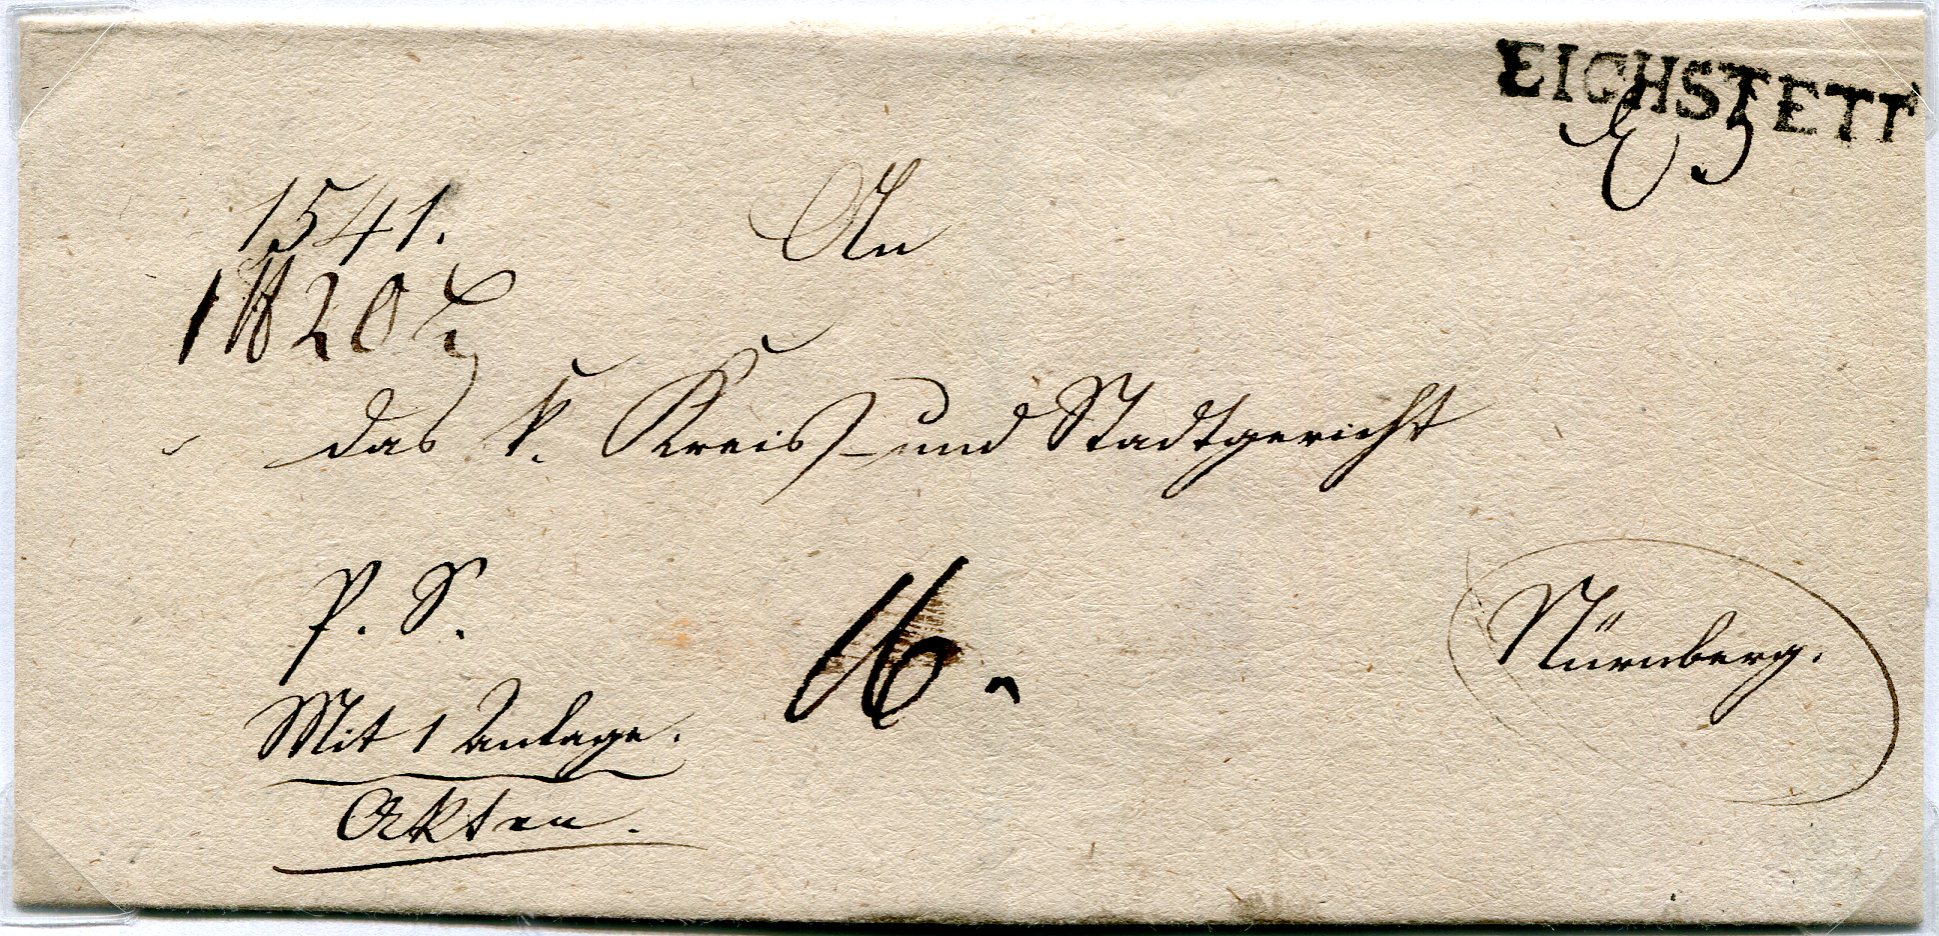 EICHSTETT
1541.
An
1 ℔ 20
das k. Kreis- und Stadtgericht
P. S.
16.
Nürnberg.
Mit 1 Anlage.
Akten.